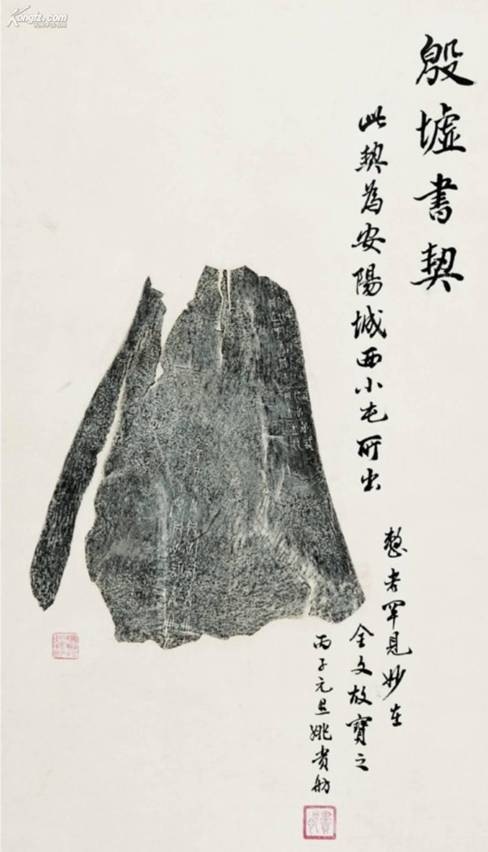 殷墟書契
此契為安陽城西小屯所出
整者罕見妙在
全文故寶之
丙子元旦姚貴昉
Kongfz.com